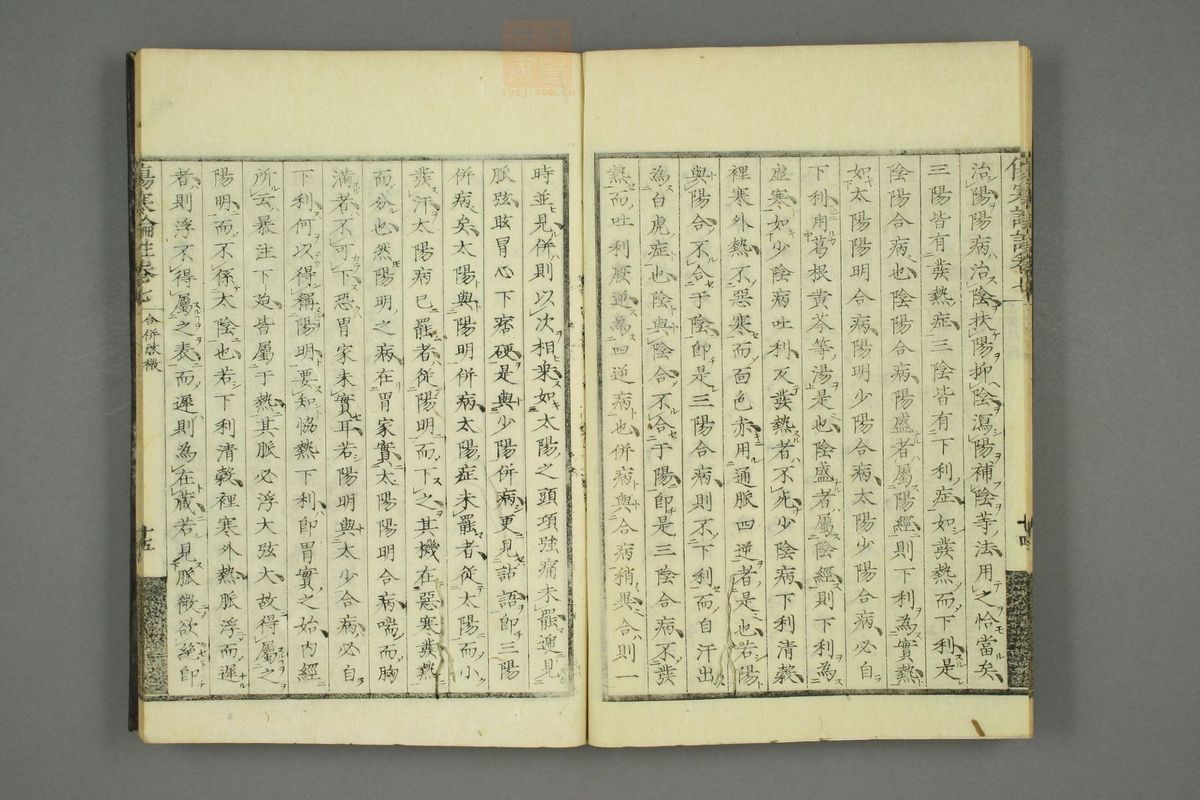 治陽陽病治陰扶陽抑陰瀉陽補陰等法用之恰當矣
三陽皆有發熱症三陰皆有下利症如發熱而下利是
陰陽合病也陰陽合病陽盛者屬陽經則下利為實熱
如太陽陽明合病陽明少陽合病太陽少陽合病必自
下利用葛根黃芩等湯是也陰盛者屬陰經則下利為
虛寒如少陰病吐利反發熱者不死少陰病下利清穀
裡寒外熱不惡寒而面色赤用通脈四逆者是也若陽
與陽合不合于陰即是三陽合病則不下利而自汗出
為白虎症也陰與陰合不合于陽即是三陰合病不發
熱而吐利厥逆為四逆病也併病與合病稍異合則一
時並見併則以次相乘如太陽之頭項強痛未罷遞見
脈弦眩冒心下痞硬是與少陽併病更見詀語即三陽
併病矣太陽與陽明併病太陽症未罷者從太陽而小
發汗太陽病已罷者從陽明而下之其機在惡寒發熱
而分也然陽明之病在胃家實太陽陽明合病喘而胸
滿者不可下恐胃家未實耳若陽明與太少合病必自
下利何以得稱陽明要知協熱下利即胃實之始內經
所云暴注下迫皆屬于熱其脈必浮大弦大故得屬之
陽明而不係太陰也若下利清穀裡寒外熱脈浮而遲
者則浮不得屬之表而遲則為在藏若見脈微欲絕即
傷寒論註卷七
合併啟微
廿五
廿四
zysj.com.cn